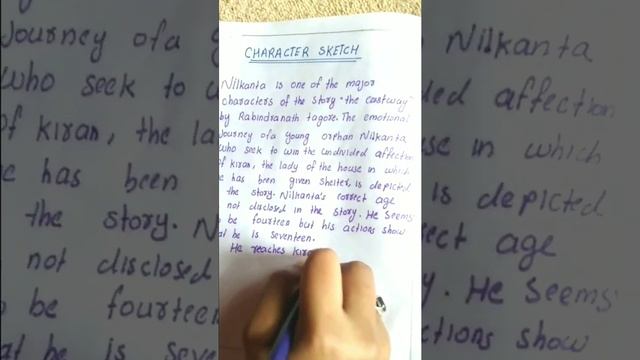 CHARACTER SKETCH
Nilkanta is one of the major
characters of the story "the castway"
by Rabindranath tagore. The emotional
journey of a young orphan Nilkanta
who seek to win the undivided affection
of kiran, the lady of the house in which
he has been given shelter, is depicted
the story. Nilkanta's correct age
not disclosed in the story. He seems
be fourteen but his actions show
at he is seventeen.
He reaches kira